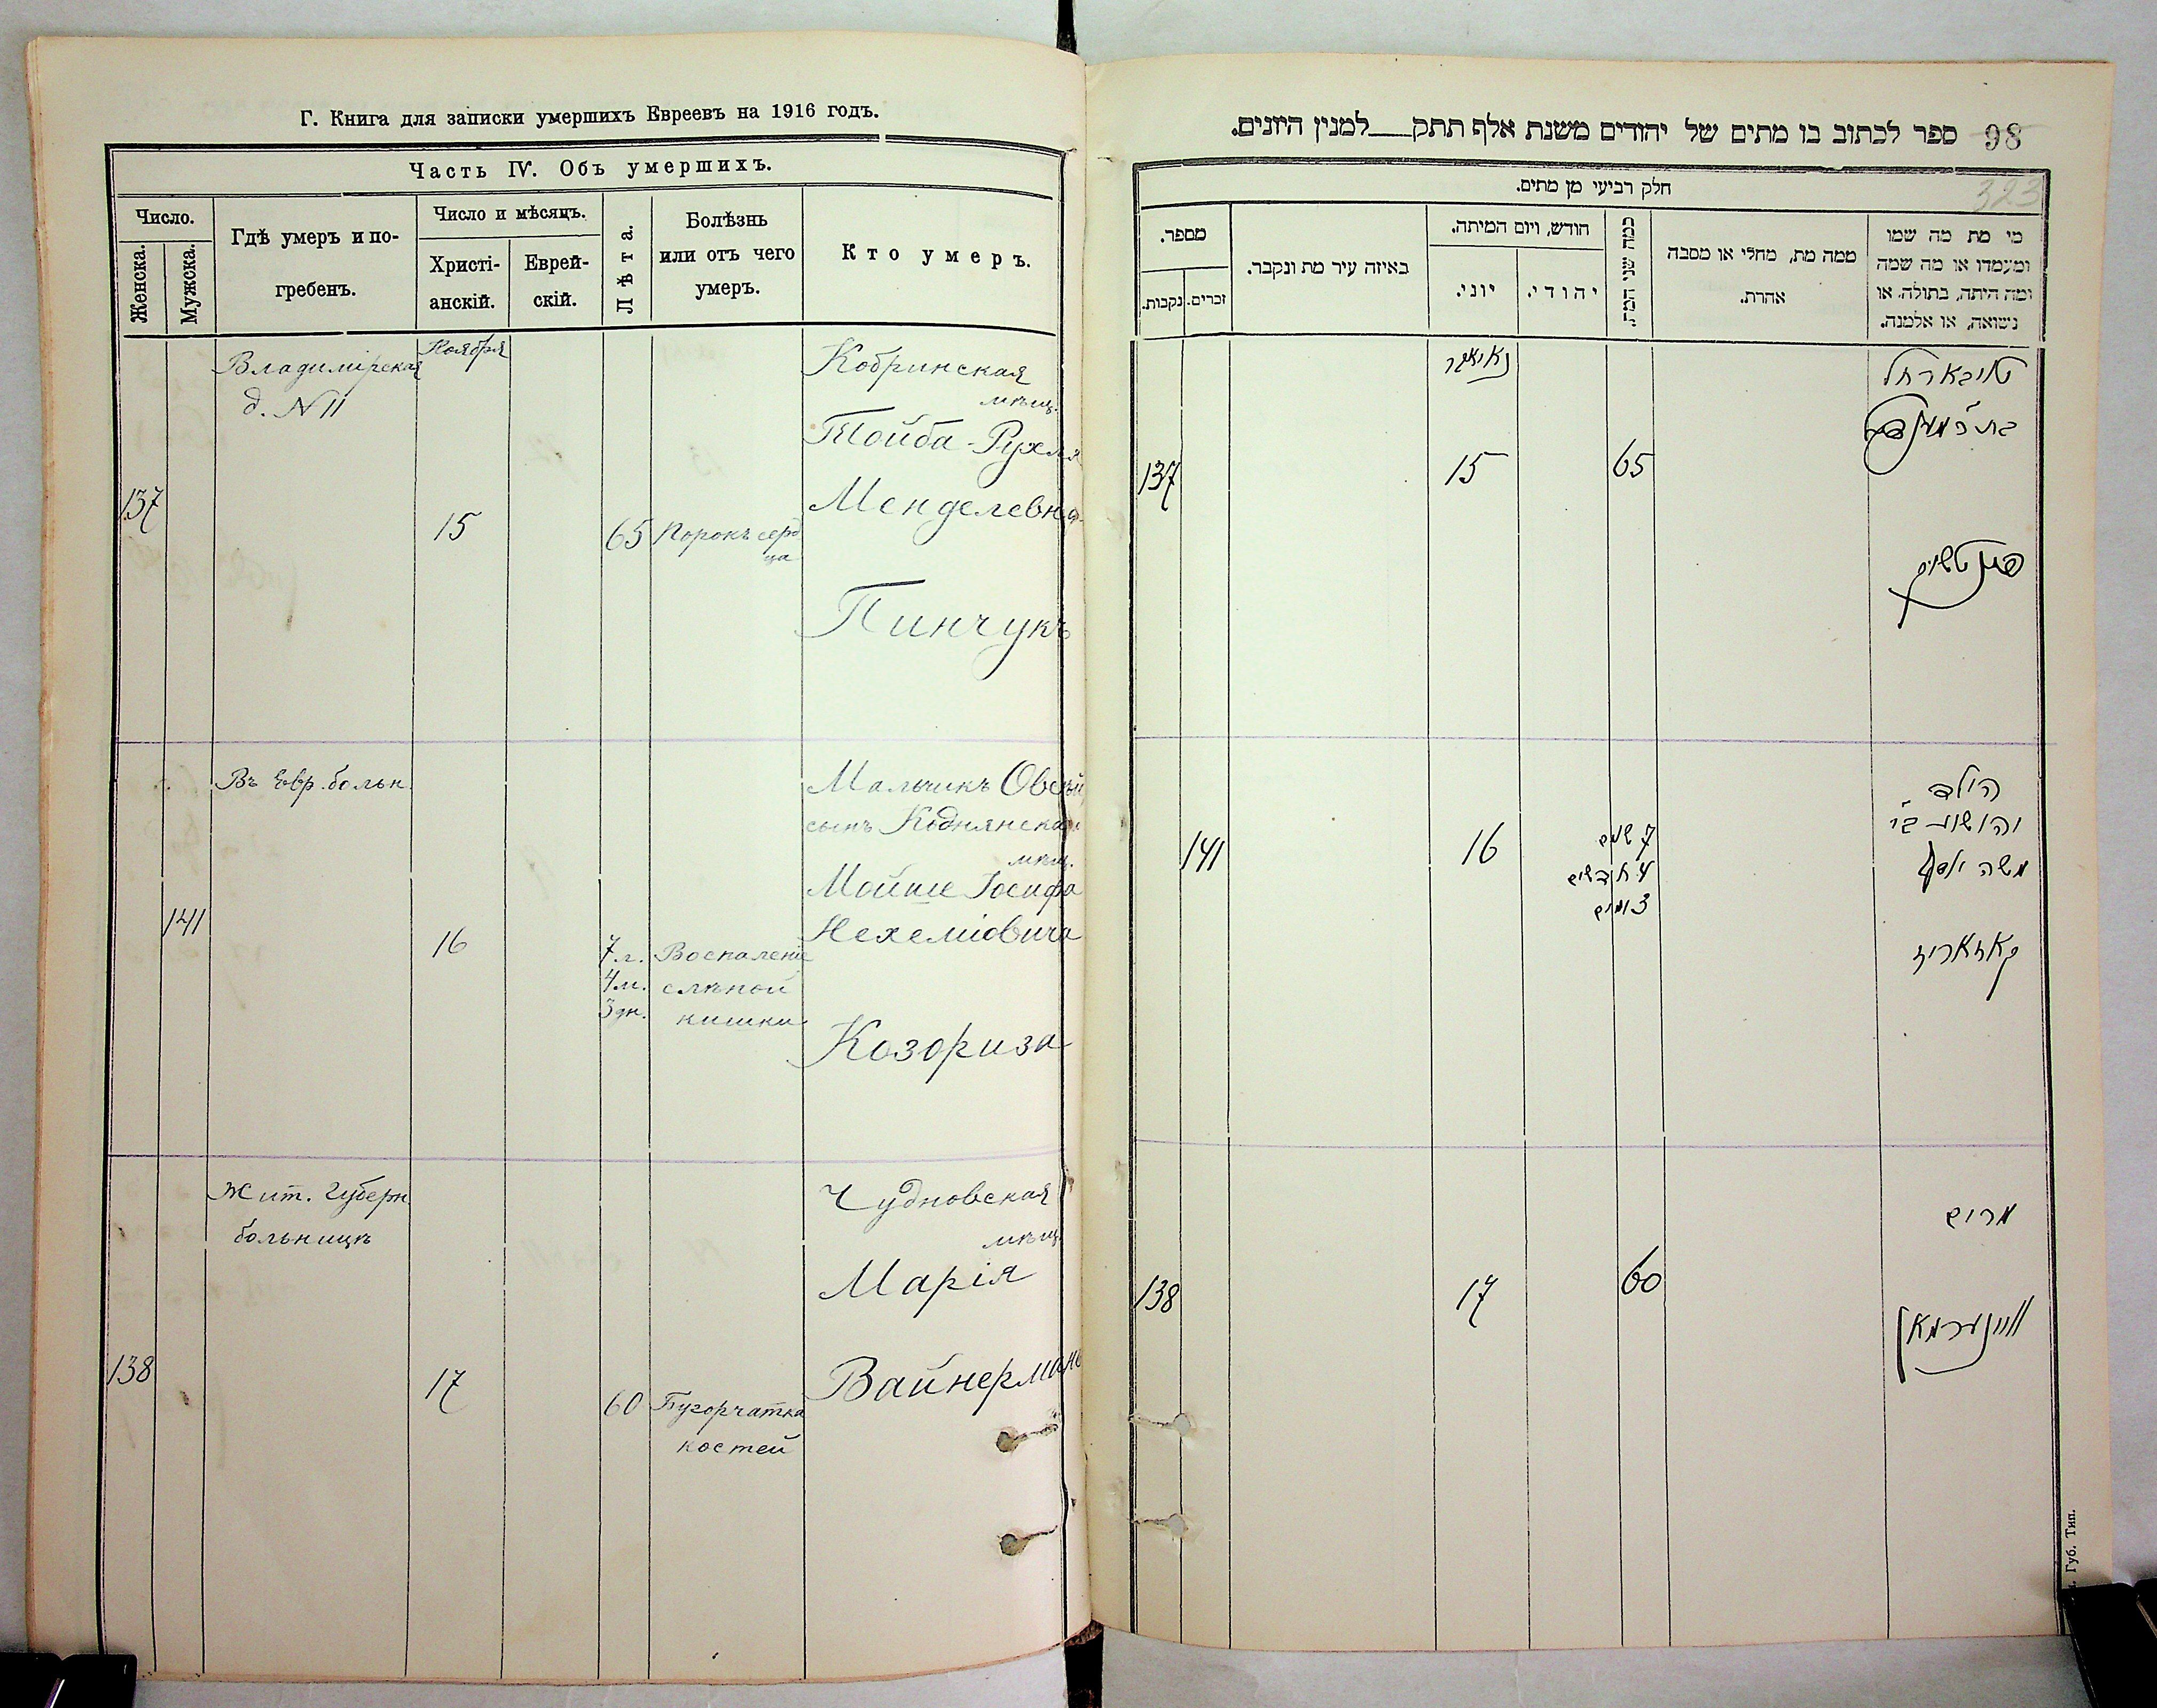 Г. Книга для записки умершихъ Евреевъ на 1916 годъ.
Часть IV. Объ умершихъ.
Число.
Женска.
Мужска.
Гдѣ умеръ и по-
гребенъ.
Число и мѣсяцъ.
Христі-
анскій.
Еврей-
скій.
Лѣта.
Болѣзнь
или отъ чего
умеръ.
Кто умеръ.
137
Владимірская
д. N 11
Ноября
15
65
Порокъ серд
ца
Кобринская
мѣщ.
Тойба-Рухля
Менделевна
Пинчукъ
141
Въ Евр. больн.
16
7 г.
4 м.
3 дн.
Воспаленіе
слѣпой
кишки
Мальчикъ Овсѣй
сынъ Коднянска
мѣщ.
Мойше Іосифа
Нехеміовича
Козориза
138
Жит. Губерн.
больницѣ
17
60
Бугорчатка
костей
Чудновская
мѣщ.
Марія
Вайнерманъ
98 ספר לכתוב בו מתים של יהודים משנת אלף תתק למנין היונים.
323
חלק רביעי מן מתים.
מספר.
נקבות.
זכרים.
באיזה עיר מת ונקבר.
חודש, ויום המיתה.
יוני.
יהודי.
כמה שני המת.
ממה מת, מחלי או מסבה
אהרת.
מי מת מה שמו
ומעמדו או מה שמה
ומה היתה, בתולה, או
נישואה, או אלמנה.
137
נאיאבר
15
65
טויבא רחל
פינטשוק
141
16
7 שנים
4 חדשים
3 ימים
הילד
יהושע ב״ר
משה יוסף
קאזאריז
138
17
60
מרים
וויינערמאן
Губ. Тип.